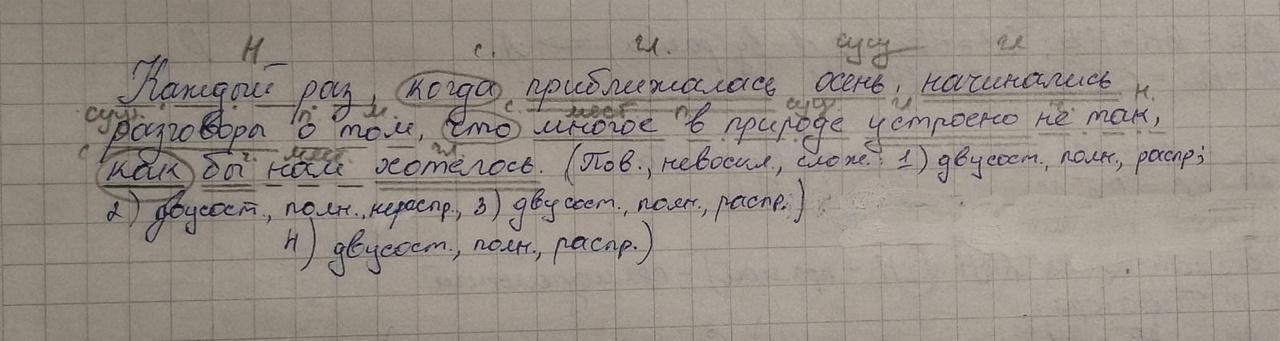 Н с. гл. сущ гл
Каждый раз, когда приближалась осень, начинались
сущ. п м с мест п сущ гл ч н.
разговоры о том, что многое в природе устроено не так,
с ч. мест. гл
как бы нам хотелось. (Пов., невоскл., слож. 1) двусост., полн., распр.;
2) двусост., полн., нераспр., 3) двусост., полн., распр.)
4) двусост., полн., распр.)